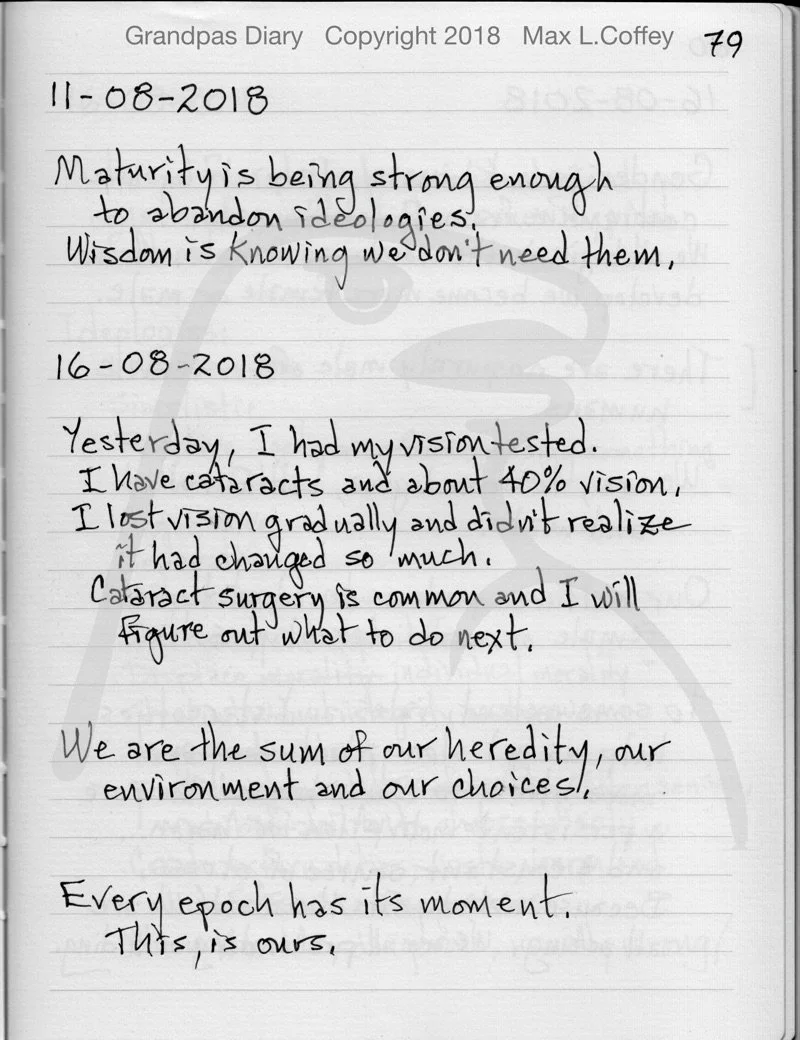 Grandpas Diary Copyright 2018 Max L.Coffey 79
11-08-2018
Maturity is being strong enough
to abandon ideologies.
Wisdom is knowing we don't need them.
16-08-2018
Yesterday, I had my vision tested.
I have cataracts and about 40% vision.
I lost vision gradually and didn't realize
it had changed so much.
Cataract surgery is common and I will
figure out what to do next.
We are the sum of our heredity, our
environment and our choices.
Every epoch has its moment.
This, is ours.